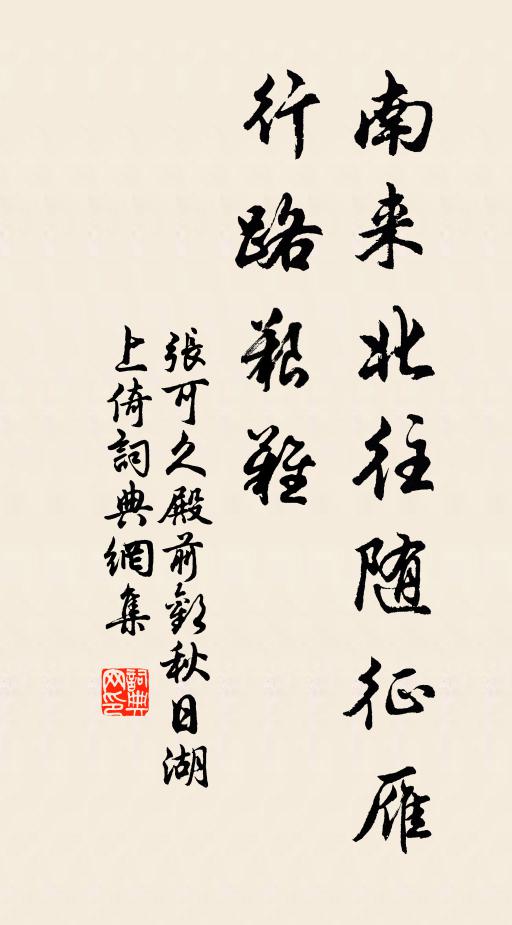 南来北往随征雁
行路艱難
張可久殿前歡秋日湖
上倚詞典網集
詞典网印